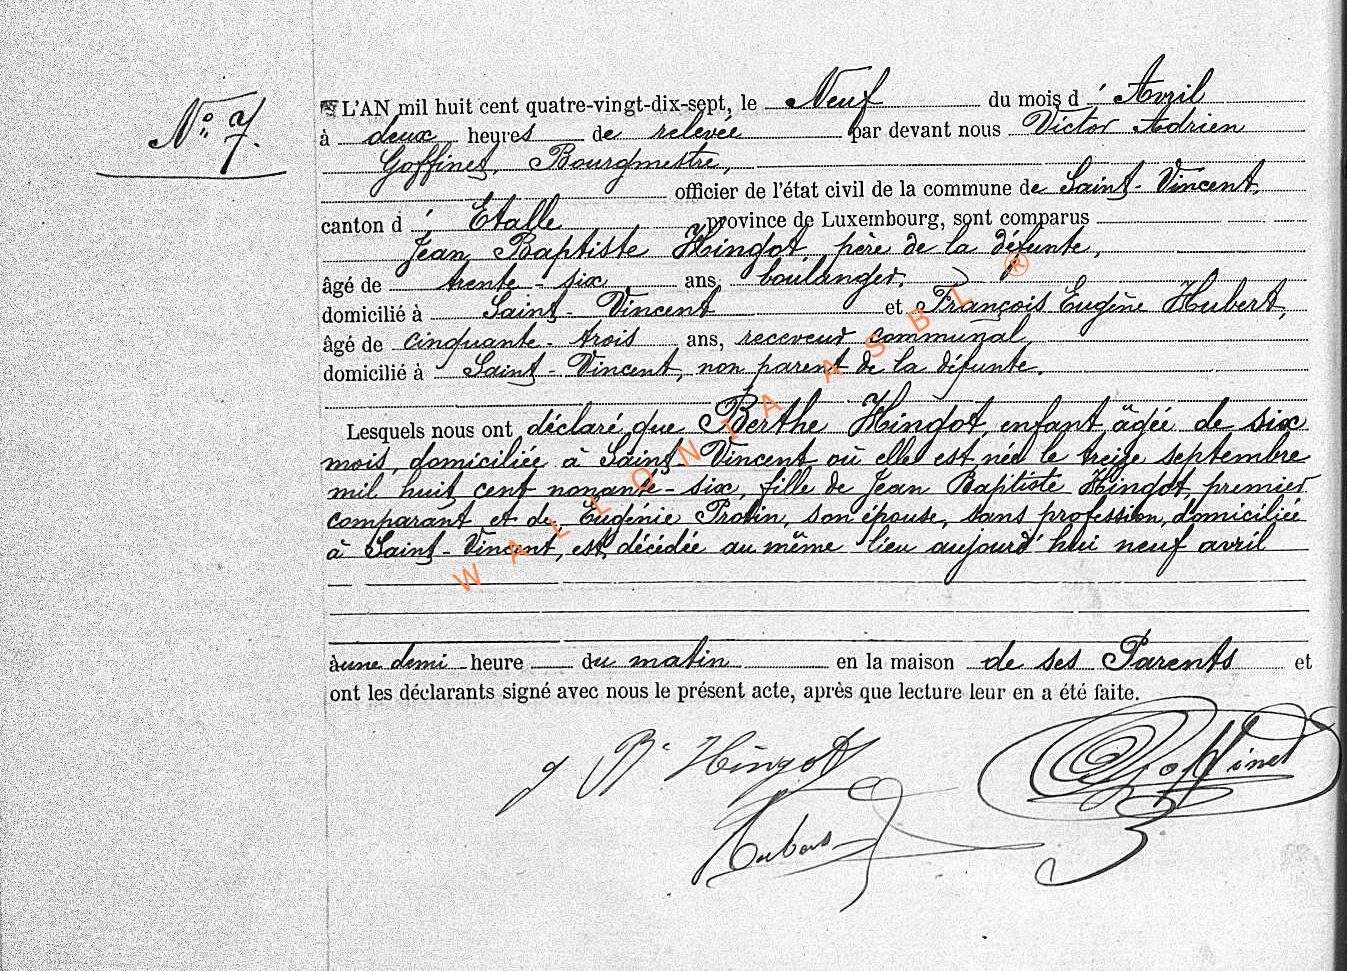 N° 7.
L'AN mil huit cent quatre-vingt-dix-sept, le Neuf du mois d'Avril
à deux heures de relevée par devant nous Victor Adrien
Goffinet, Bourgmestre,
officier de l'état civil de la commune de Saint-Vincent,
canton d'Etalle province de Luxembourg, sont comparus
Jean Baptiste Hingot, père de la défunte,
âgé de trente-six ans, boulanger,
domicilié à Saint-Vincent et François Eugène Hubert,
âgé de cinquante-trois ans, receveur communal,
domicilié à Saint-Vincent, non parent de la défunte.
Lesquels nous ont déclaré que Berthe Hingot, enfant âgée de six
mois, domiciliée à Saint-Vincent où elle est née le treize septembre
mil huit cent nonante-six, fille de Jean Baptiste Hingot, premier
comparant et de Eugénie Protin, son épouse, sans profession, domiciliée
à Saint-Vincent, est décédée au même lieu aujourd'hui neuf avril
à une demi heure du matin en la maison de ses Parents et
ont les déclarants signé avec nous le présent acte, après que lecture leur en a été faite.
J Bte Hingot
Goffinet
Hubert
WALLONIA ASBL ®